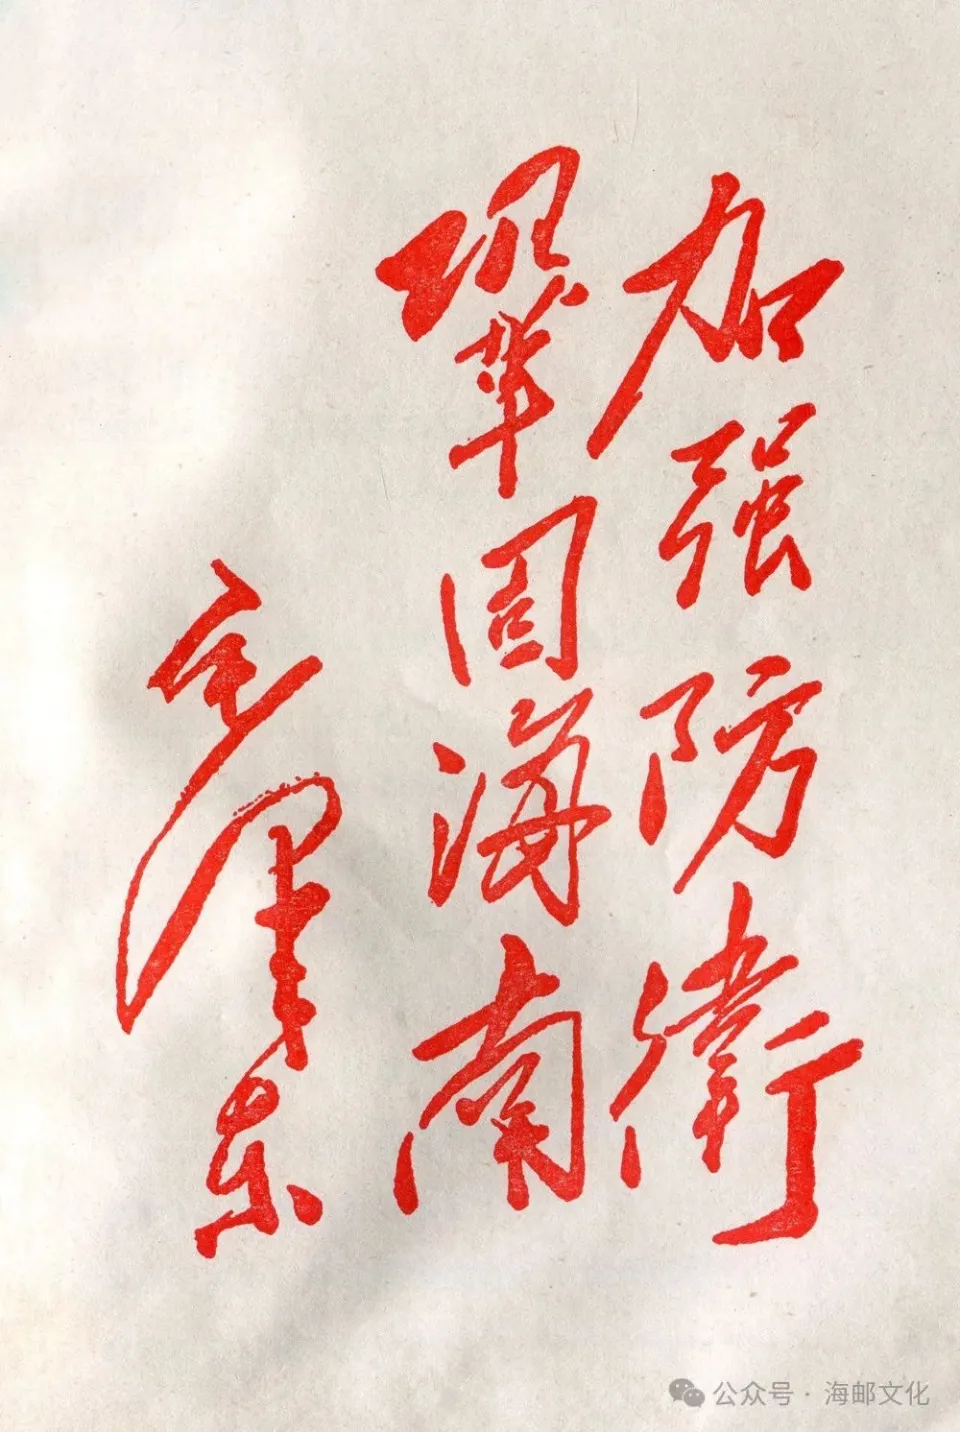 加强防衛
巩固海南
毛泽东
公众号 · 海邮文化